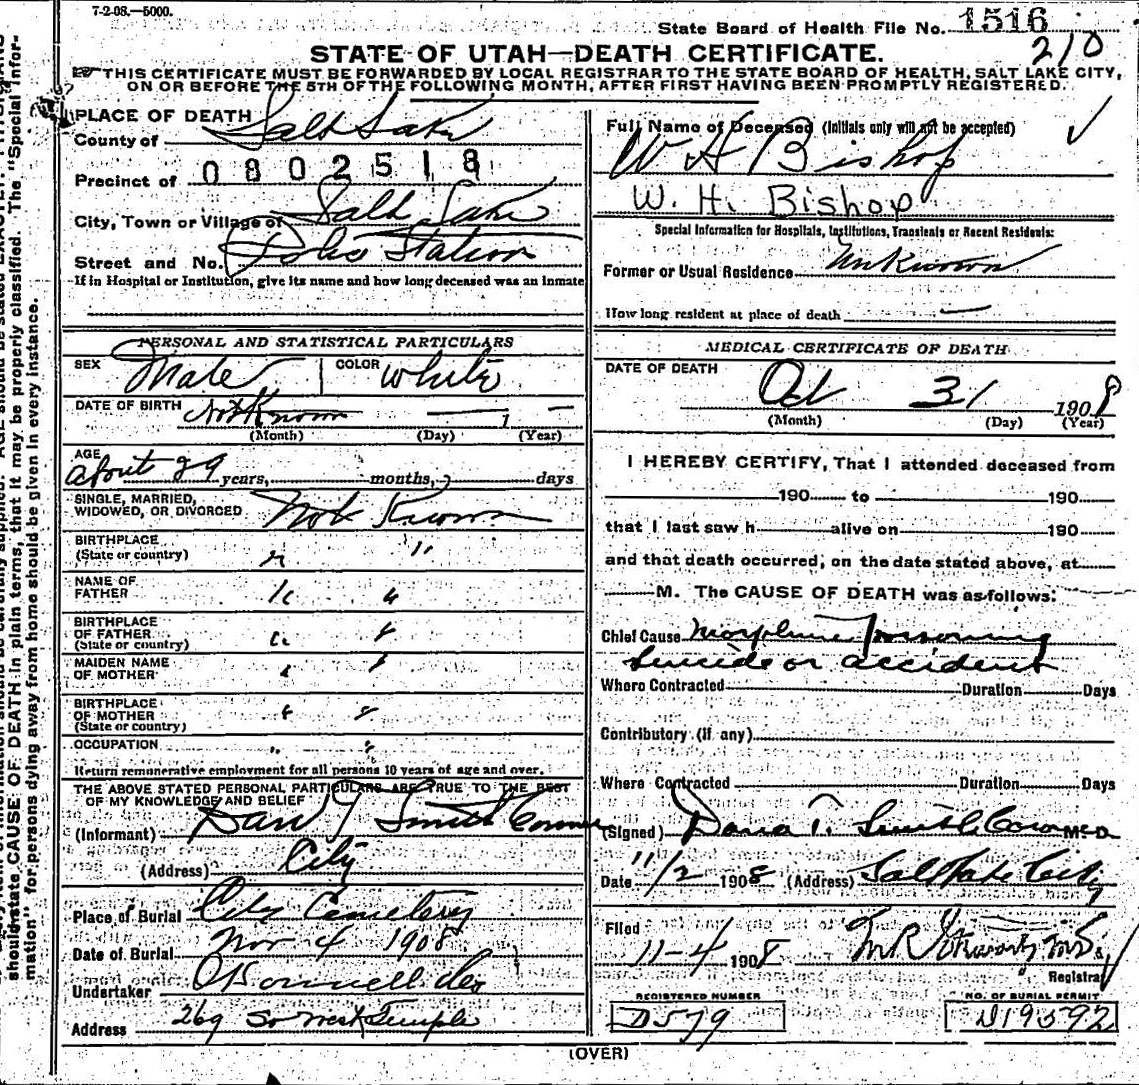 7-2-08.—5000.
State Board of Health File No. 1516
210
STATE OF UTAH—DEATH CERTIFICATE.
THIS CERTIFICATE MUST BE FORWARDED BY LOCAL REGISTRAR TO THE STATE BOARD OF HEALTH, SALT LAKE CITY,
ON OR BEFORE THE 5TH OF THE FOLLOWING MONTH, AFTER FIRST HAVING BEEN PROMPTLY REGISTERED.
PLACE OF DEATH
County of Salt Lake
Precinct of 0802518
City, Town or Village of Salt Lake
Street and No. Police Station
If in Hospital or Institution, give its name and how long deceased was an inmate
PERSONAL AND STATISTICAL PARTICULARS
SEX Male COLOR White
DATE OF BIRTH Not Known
(Month) (Day) (Year)
AGE
about 29 years, months, days
SINGLE, MARRIED,
WIDOWED, OR DIVORCED Not Known
BIRTHPLACE
(State or country) " "
NAME OF
FATHER " "
BIRTHPLACE
OF FATHER
(State or country) " "
MAIDEN NAME
OF MOTHER " "
BIRTHPLACE
OF MOTHER
(State or country) " "
OCCUPATION " "
Return remunerative employment for all persons 10 years of age and over.
THE ABOVE STATED PERSONAL PARTICULARS ARE TRUE TO THE BEST
OF MY KNOWLEDGE AND BELIEF
(Informant) Dan T Smith
(Address) City
Place of Burial City Cemetery
Date of Burial Nov 4 1908
Undertaker O'Donnell
Address 269 So West Temple
Full Name of Deceased (Initials only will not be accepted)
W H Bishop
W. H. Bishop
Special Information for Hospitals, Institutions, Transients or Recent Residents:
Former or Usual Residence Unknown
How long resident at place of death —
MEDICAL CERTIFICATE OF DEATH
DATE OF DEATH
Oct 31 1908
(Month) (Day) (Year)
I HEREBY CERTIFY, That I attended deceased from
190 to 190
that I last saw h alive on 190
and that death occurred, on the date stated above, at
M. The CAUSE OF DEATH was as follows:
Chief Cause Morphine Poisoning
Suicide or accident
Where Contracted Duration Days
Contributory (if any)
Where Contracted Duration Days
(Signed) Dana T. Smith M. D.
Date 11/2 1908 (Address) Salt Lake City
Filed
11-4 1908
Registrar
REGISTERED NUMBER
D579
NO. OF BURIAL PERMIT
D19592
(OVER)
should state CAUSE OF DEATH in plain terms, that it may be properly classified. The "Special Infor-
mation" for persons dying away from home should be given in every instance.